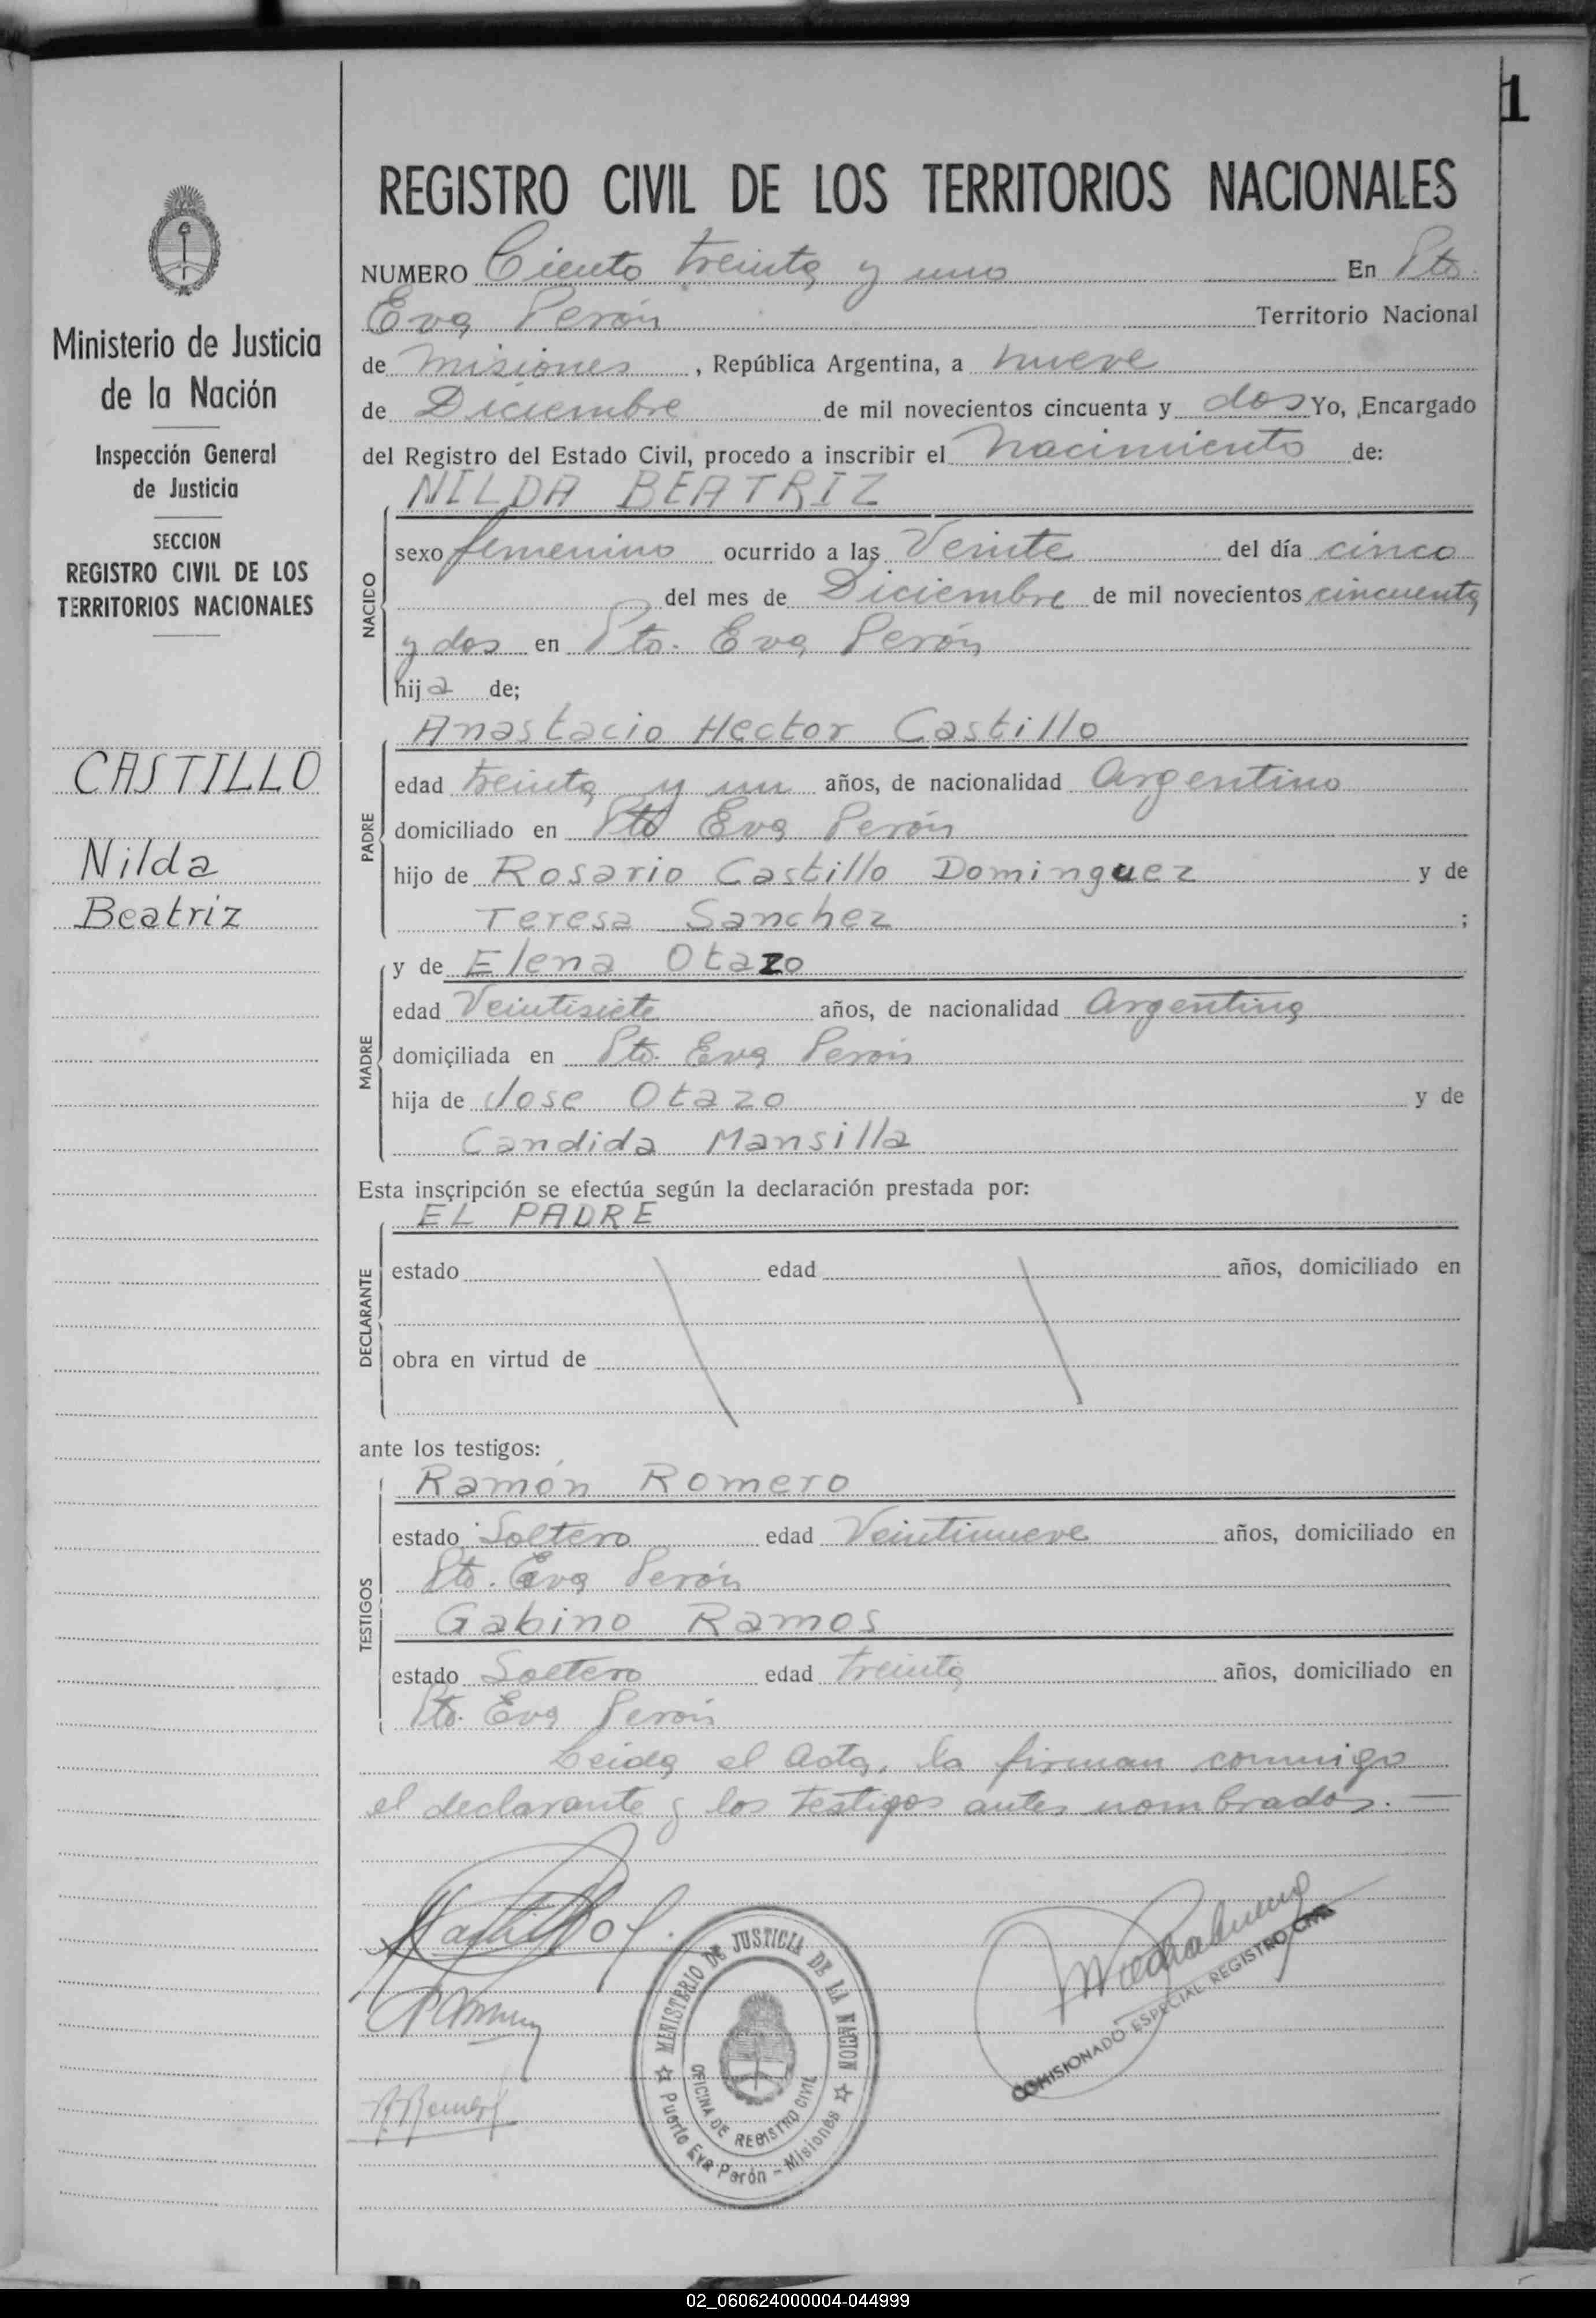 1
REGISTRO CIVIL DE LOS TERRITORIOS NACIONALES
NUMERO Ciento treinta y uno En Pto.
Eva Perón Territorio Nacional
de Misiones, República Argentina, a nueve
de Diciembre de mil novecientos cincuenta y dos Yo, Encargado
del Registro del Estado Civil, procedo a inscribir el nacimiento de:
Ministerio de Justicia
de la Nación
Inspección General
de Justicia
SECCION
REGISTRO CIVIL DE LOS
TERRITORIOS NACIONALES
CASTILLO
Nilda
Beatriz
NACIDO
NILDA BEATRIZ
sexo femenino ocurrido a las Veinte del día cinco
del mes de Diciembre de mil novecientos cincuenta
y dos en Pto. Eva Perón
hija de;
PADRE
Anastacio Hector Castillo
edad treinta y un años, de nacionalidad Argentino
domiciliado en Pto Eva Perón
hijo de Rosario Castillo Dominguez y de
Teresa Sanchez ;
MADRE
y de Elena Otazo
edad Veintisiete años, de nacionalidad Argentina
domiçiliada en Pto. Eva Perón
hija de Jose Otazo y de
Candida Mansilla
Esta insçripción se efectúa según la declaración prestada por:
DECLARANTE
EL PADRE
estado edad años, domiciliado en
obra en virtud de
ante los testigos:
TESTIGOS
Ramón Romero
estado Soltero edad Veintinueve años, domiciliado en
Pto. Eva Perón
Gabino Ramos
estado Soltero edad treinta años, domiciliado en
Pto. Eva Perón
Leida el Acta, la firman conmigo
el declarante y los testigos antes nombrados. —
MINISTERIO DE JUSTICIA DE LA NACION
OFICINA DE REGISTRO CIVIL
Puerto Eva Perón - Misiones
COMISIONADO ESPECIAL REGISTRO CIVIL
02_060624000004-044999